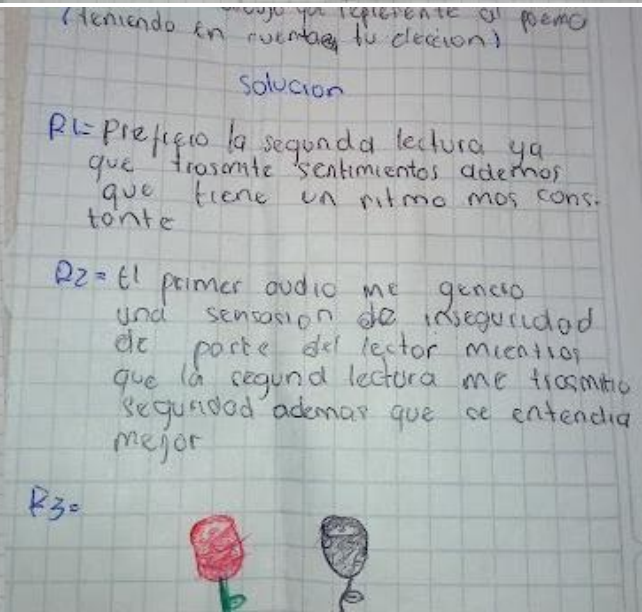 dibujo que represente al poema
(teniendo en cuentaes tu eleccion)
Solucion
R1= Prefiero la segunda lectura ya
que trasmite sentimientos ademas
que tiene un ritmo mas cons-
tante
R2= El primer audio me genero
una sensasion de inseguridad
de parte del lector mientras
que la segund lectura me trasmitio
seguridad ademas que se entendia
mejor
R3=